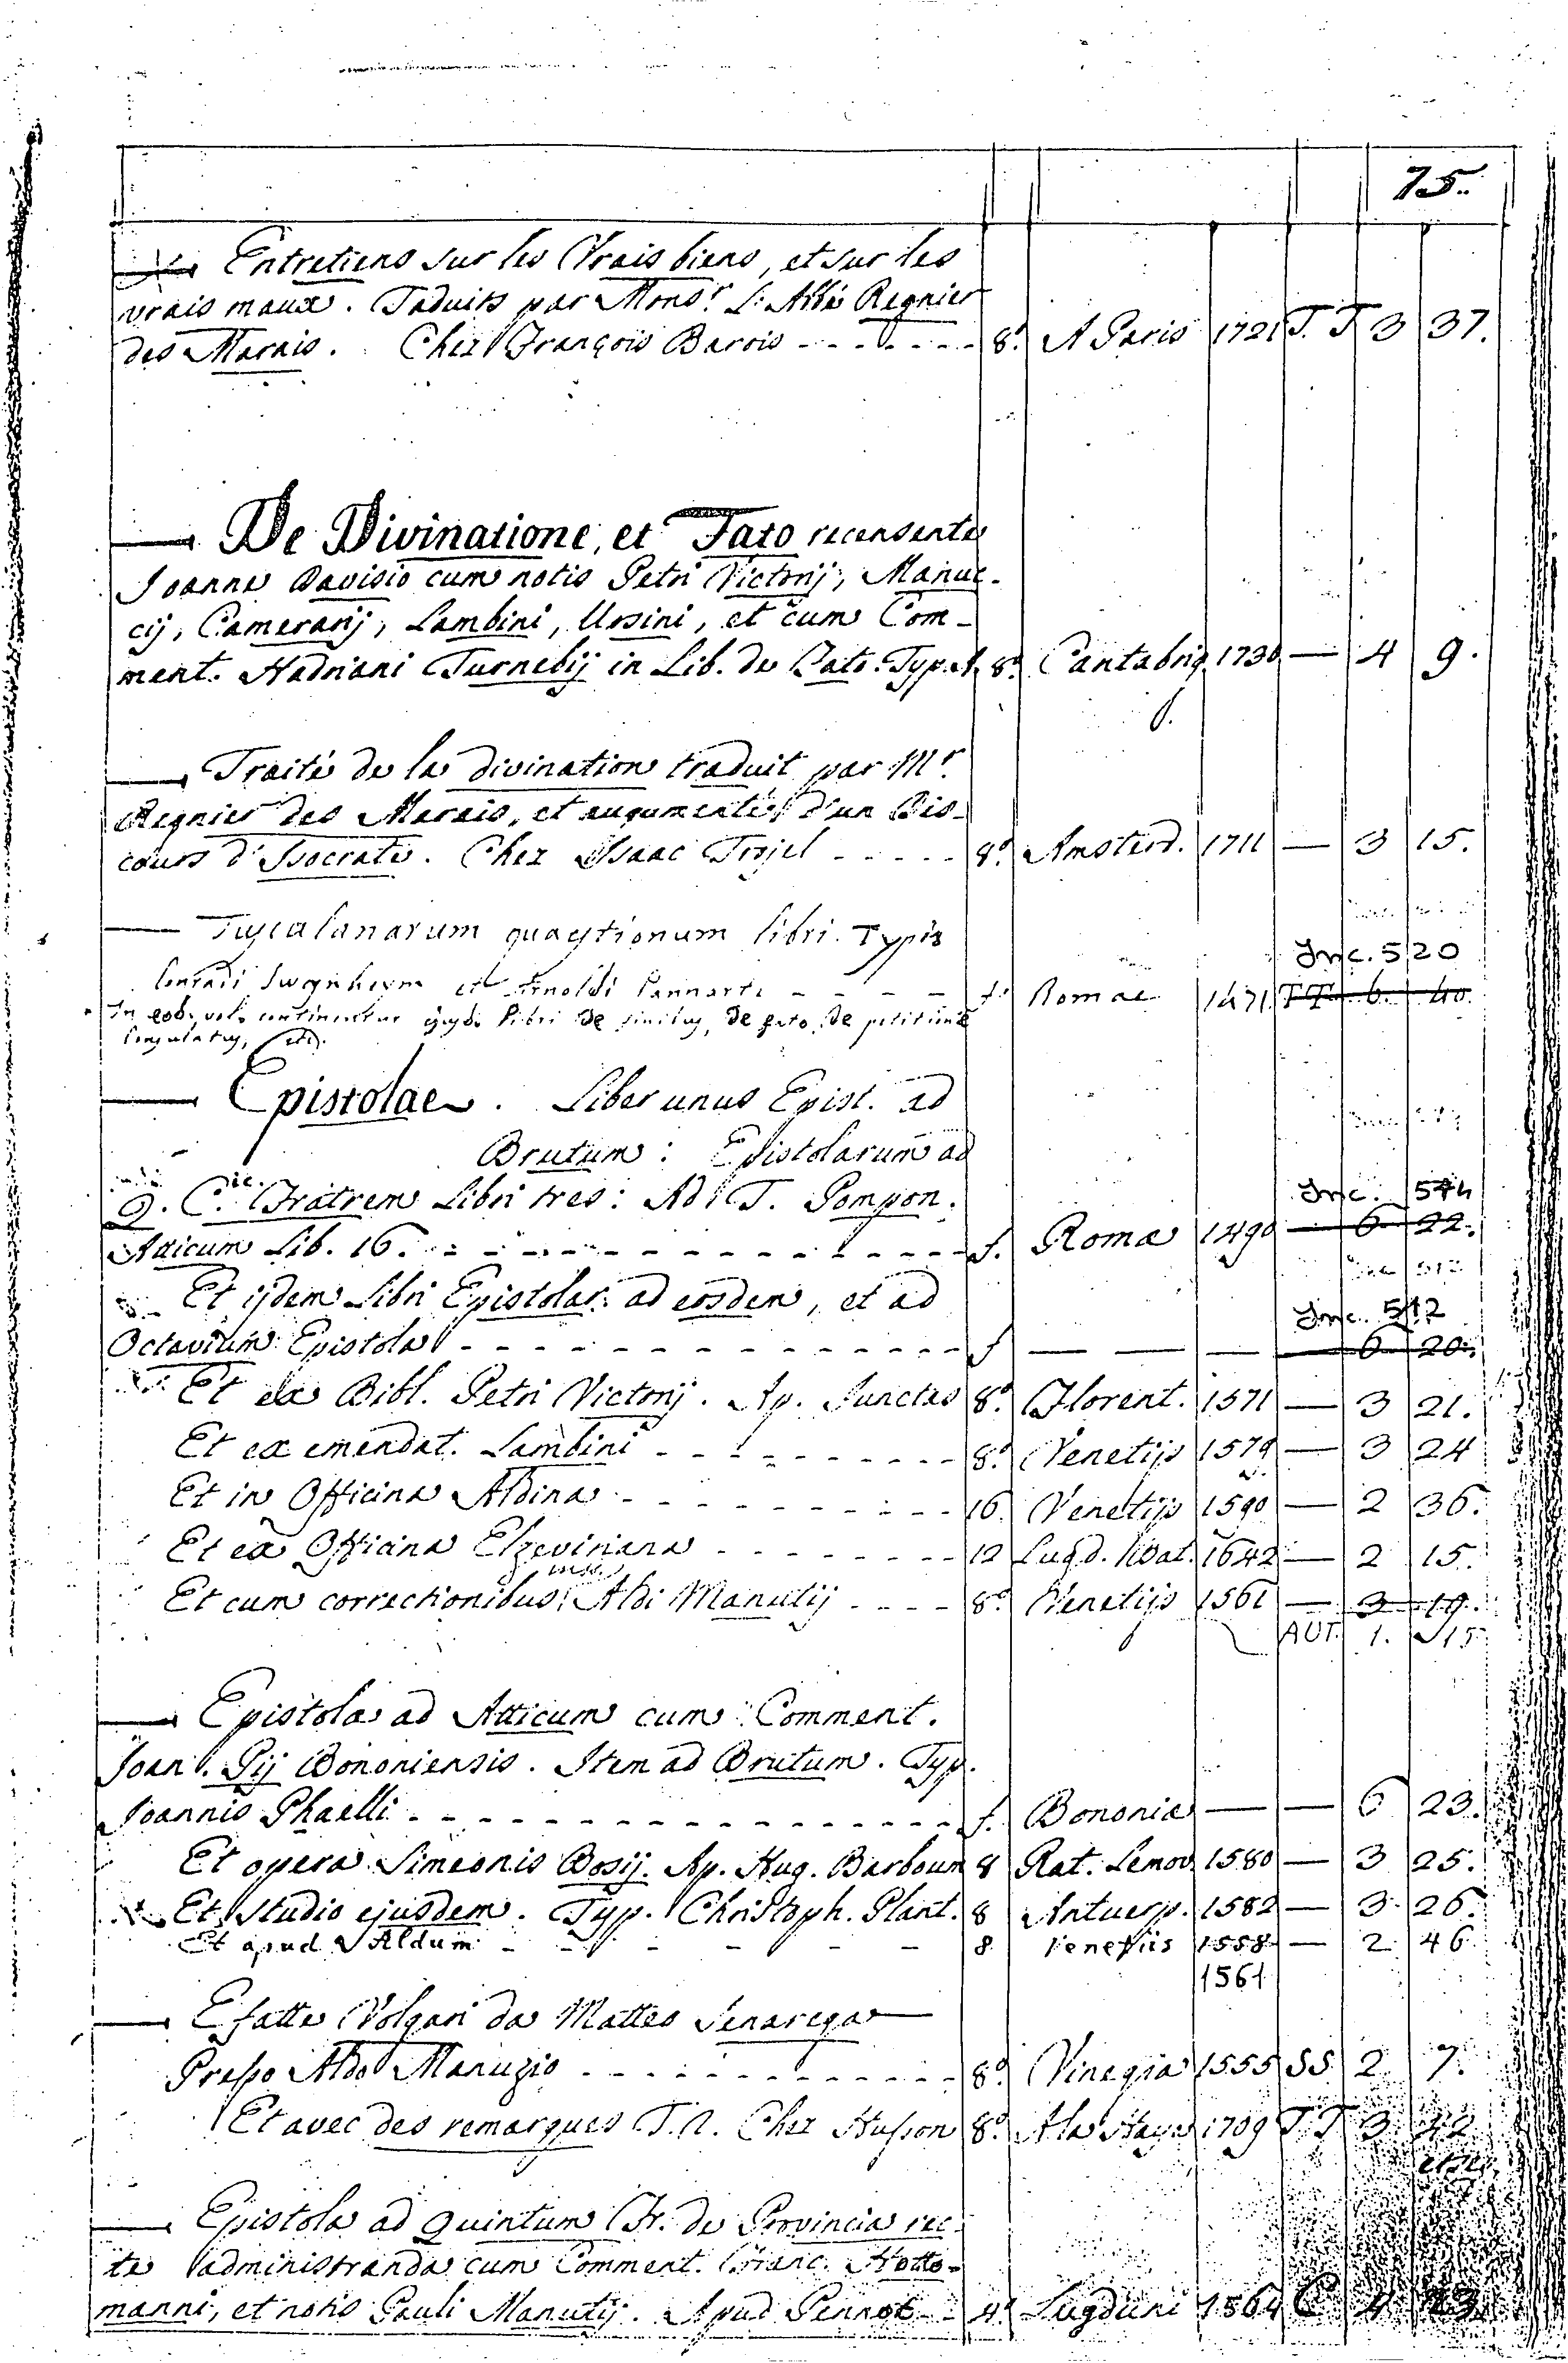 75.
Entretiens sur les Vrais biens, et sur les
vrais maux. Traduits par Mons.r L. Abbé Regnier
des Marais. Chez François Barois - - - - - - - 8.o A Paris 1721 T. T 3 37.
— De Divinatione, et Fato recensente
Joanne Davisio cum notis Petri Victorij, Manuc-
cij, Camerarij, Lambini, Ursini, et cum Com-
ment. Hadriani Turnebij in Lib. de Fato. Typ. A. 8.o Cantabrig. 1730 — 4 9.
— Traité de la divination traduit par Mr.
Regnier des Marais, et augumenté d'un Dis-
cours d'Isocrate. Chez Isaac Trojel - - - - - 8.o Amsterd. 1711 — 3 15.
— Tusculanarum quaestionum libri. Typis
Inc. 520
Conradi Sweynheym et Arnoldi Pannarti - - - - - f. Romae 1471 TT 6. 40
In eod. vol. continentur ejusd. libri de finibus, de fato, de petitione
Consulatus,
— Epistolae. Liber unus Epist. ad
Brutum: Epistolarum ad
Q. Cic. Fratrem Libri tres: Ad T. Pompon.
Inc. 544
Atticum Lib. 16. - - - - - - - - - - f. Romae 1490 — 6 22.
Et ijdem Libri Epistolar. ad eosdem, et ad
Inc. 512
Octavium Epistola - - - - - - - - - - f — — — — 6 20.
Et ex Bibl. Petri Victorij. Ap. Junctas 8.o Florent. 1571 — 3 21.
Et ex emendat. Lambini - - - - - - - - 8.o Venetijs 1579 — 3 24
Et in Officina Aldina - - - - - - - - - 16. Venetijs 1590 — 2 36.
Et ex Officina Elzeviriana - - - - - - - 12 Lugd. Bat. 1642 — 2 15.
mss.
Et cum correctionibus Aldi Manutij - - - - 8.o Venetijs 1561 — 3 19.
AUT. 1. 15
— Epistolae ad Atticum cum Comment.
Joan. Pij Bononiensis. Item ad Brutum. Typ.
Joannis Phaelli - - - - - - - - - - - f. Bononiae — — 6 23.
Et opera Simeonis Bosij. Ap. Hug. Barboum 8 Rat. Lemov. 1580 — 3 25.
Et Studio ejusdem. Typ. Christoph. Plant. 8 Antuerp. 1582 — 3. 26.
Et apud Aldum - - - - - 8 Venetiis 1558 — 2 46
1561
— E fatte Volgari da Matteo Senarega —
Presso Aldo Manuzio - - - - - - - - - 8.o Vinegia 1555 SS 2 7.
Et avec des remarques T. II. Chez Husson 8.o A la Haye 1709 T. T 3 42
— Epistola ad Quintum Fr. de Provincia rec-
te administranda cum Comment. Franc. Hotto-
manni, et notis Pauli Manutij. Apud Pennot - 4.o Lugduni 1564 C 4 23